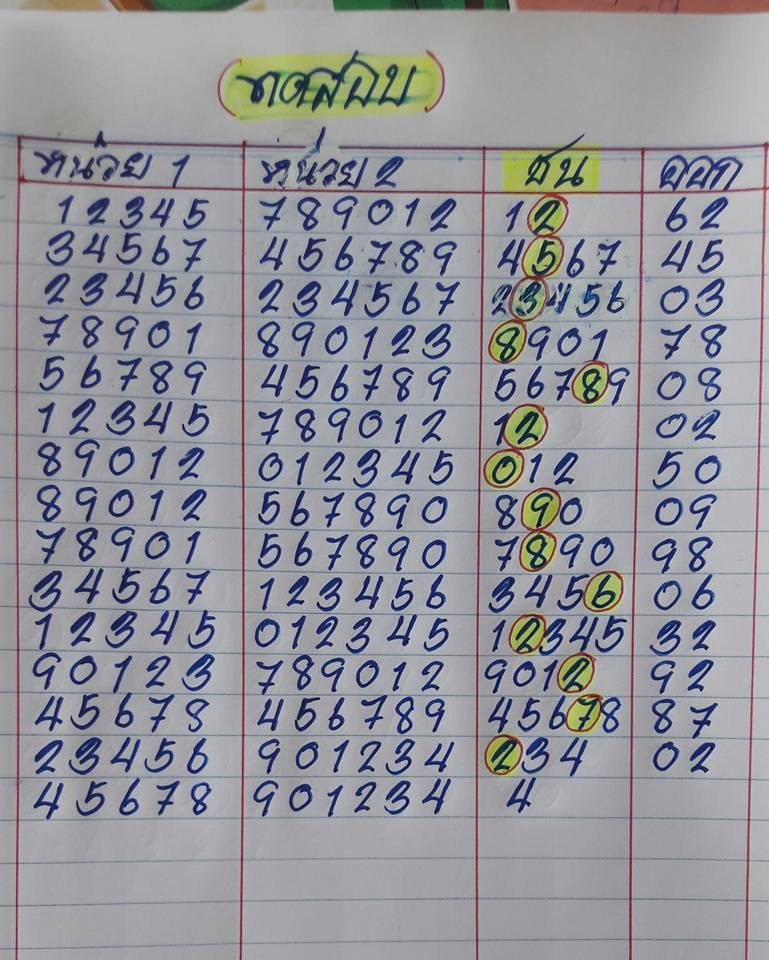 (ทดสอบ)
หน่วย 1 หน่วย 2 ชน ออก
12345 789012 12 62
34567 456789 4567 45
23456 234567 23456 03
78901 890123 8901 78
56789 456789 56789 08
12345 789012 12 02
89012 012345 012 50
89012 567890 890 09
78901 567890 7890 98
34567 123456 3456 06
12345 012345 12345 32
90123 789012 9012 92
45678 456789 45678 87
23456 901234 234 02
45678 901234 4